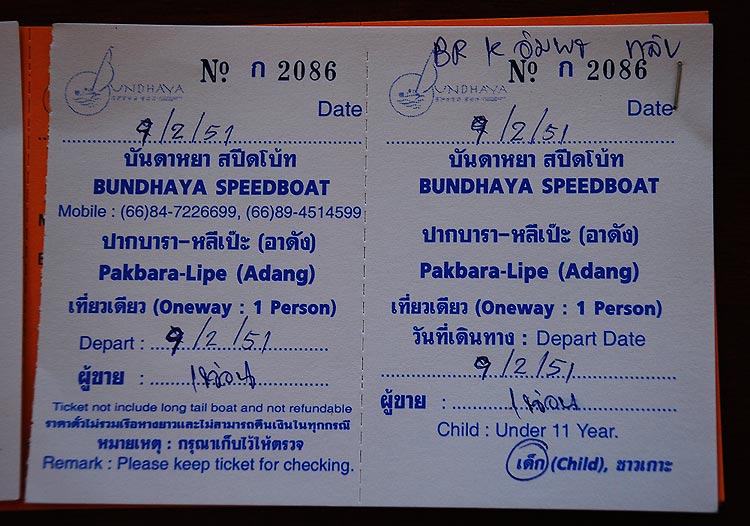 BUNDHAYA
Nº ก 2086
Date
9/2/51
บันดาหยา สปีดโบ้ท
BUNDHAYA SPEEDBOAT
Mobile : (66)84-7226699, (66)89-4514599
ปากบารา-หลีเป๊ะ (อาดัง)
Pakbara-Lipe (Adang)
เที่ยวเดียว (Oneway : 1 Person)
Depart : 9/2/51
ผู้ขาย :
Ticket not include long tail boat and not refundable
ราคาตั๋วไม่รวมเรือหางยาวและไม่สามารถคืนเงินในทุกกรณี
หมายเหตุ : กรุณาเก็บไว้ให้ตรวจ
Remark : Please keep ticket for checking.
BR K
BUNDHAYA
Nº ก 2086
Date
9/2/51
บันดาหยา สปีดโบ้ท
BUNDHAYA SPEEDBOAT
ปากบารา-หลีเป๊ะ (อาดัง)
Pakbara-Lipe (Adang)
เที่ยวเดียว (Oneway : 1 Person)
วันที่เดินทาง : Depart Date
9/2/51
ผู้ขาย :
Child : Under 11 Year.
เด็ก (Child), ชาวเกาะ